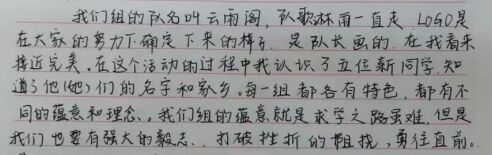 我们组的队名叫云雨阁,队歌淋雨一直走,LOGO是
在大家的努力下确定下来的样子,是队长画的,在我看来
接近完美。在这个活动的过程中我认识了五位新同学,知
道了他(她)们的名字和家乡。每一组都各有特色,都有不
同的蕴意和理念。我们组的蕴意就是求学之路虽难,但是
我们也要有强大的毅志,打破挫折的阻拢,勇往直前。